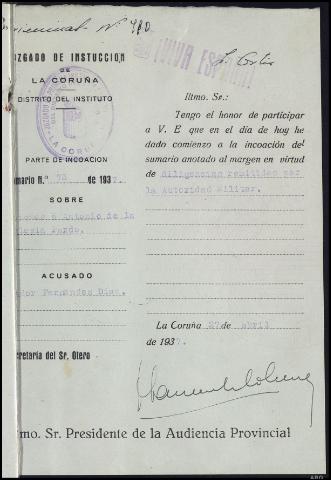 Nº 490
¡VIVA ESPAÑA!
JUZGADO DE INSTUCCION
DE
LA CORUÑA
DISTRITO DEL INSTITUTO
LA CORUÑA
PARTE DE INCOACION
Sumario N.º 73 de 1937.
SOBRE
a Antonio de la
Iglesia Pardo.
ACUSADO
Fernández Díaz.
Secretaría del Sr. Otero
Iltmo. Sr.:
Tengo el honor de participar
a V. E que en el día de hoy he
dado comienzo a la incoación del
sumario anotado al margen en virtud
de diligencias remitidas por
la Autoridad Militar.
La Coruña 27 de abril
de 1937.
Iltmo. Sr. Presidente de la Audiencia Provincial